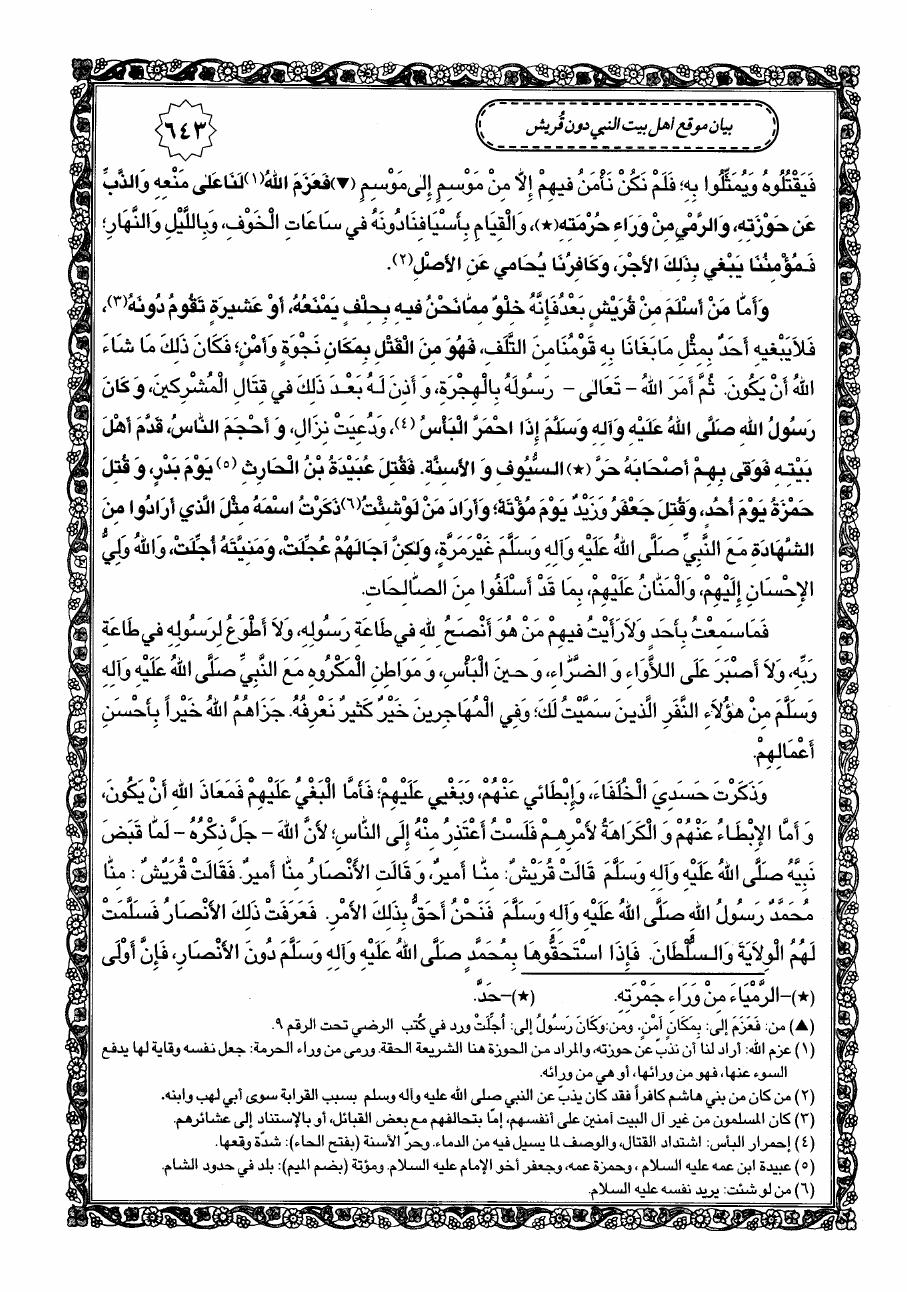 بيان موقع أهل بيت النبي دون قُريش
٦٤٣
فَيَقْتُلُوهُ وَيُمَثِّلُوا بِهِ؛ فَلَمْ نَكُنْ نَأْمَنُ فيهِمْ إِلّا مِنْ مَوْسِمٍ إِلى مَوْسِمٍ (▼) فَعَزَمَ اللهُ(١) لَنَا عَلى مَنْعِهِ وَالذَّبِّ
عَن حَوْزَتِهِ، وَالرَّمْيِ مِنْ وَرَاءِ حُرْمَتِهِ(★)، وَالْقِيَامِ بِأَسْيَافِنَا دُونَهُ في سَاعَاتِ الْخَوْفِ، وَبِاللَّيْلِ وَالنَّهَارِ؛
فَـمُؤْمِنُنَا يَبْغي بِذَلِكَ الأَجْرَ، وَكَافِرُنَا يُحَامي عَنِ الأَصْلِ(٢).
وَأَمّا مَنْ أَسْلَمَ مِنْ قُرَيْشٍ بَعْدُ فَإِنَّهُ خَلْوٌ مِمّا نَحْنُ فيهِ بِحِلْفٍ يَمْنَعُهُ، أَوْ عَشيرَةٍ تَقُومُ دُونَهُ(٣)،
فَلاَ يَبْغيهِ أَحَدٌ بِمِثْلِ مَا بَغَانَا بِهِ قَوْمُنَا مِنَ التَّلَفِ، فَهُوَ مِنَ الْقَتْلِ بِمَكَانِ نَجْوَةٍ وَأَمْنٍ؛ فَكَانَ ذَلِكَ مَا شَاءَ
اللهُ أَنْ يَكُونَ. ثُمَّ أَمَرَ اللهُ - تَعَالى - رَسُولَهُ بِالْهِجْرَةِ، وَ أَذِنَ لَـهُ بَعْـدَ ذَلِكَ في قِتَالِ الْمُشْرِكينَ، وَ كَانَ
رَسُولُ اللهِ صَلَّى اللهُ عَلَيْهِ وَآلِهِ وَسَلَّمَ إِذَا احْمَرَّ الْبَأْسُ (٤)، وَدُعِيَتْ نِزَالِ، وَ أَحْجَمَ النّاسُ، قَدَّمَ أَهْلَ
بَيْتِهِ فَوَقى بِهِـمْ أَصْحَابَهُ حَرَّ (★) السُّيُوفِ وَ الأَسِنَّةِ. فَقُتِلَ عُبَيْدَةُ بْنُ الْحَارِثِ (٥) يَوْمَ بَدْرٍ، وَ قُتِلَ
حَمْزَةُ يَوْمَ أُحُدٍ، وَقُتِلَ جَعْفَرُ وَزَيْدٌ يَوْمَ مُؤْتَةَ؛ وَأَرَادَ مَنْ لَوْ شِئْتُ(٦) ذَكَرْتُ اسْمَهُ مِثْلَ الَّذي أَرَادُوا مِنَ
الشَّهَادَةِ مَعَ النَّبِيِّ صَلَّى اللهُ عَلَيْهِ وَآلِهِ وَسَلَّمَ غَيْرَ مَرَّةٍ، وَلَكِنَّ آجَالَهُمْ عُجِّلَتْ، وَمَنِيَّتَهُ أُجِّلَتْ، وَاللهُ وَلِيُّ
الإِحْسَانِ إِلَيْهِمْ، وَالْمَنّانُ عَلَيْهِمْ، بِمَا قَدْ أَسْلَفُوا مِنَ الصّالِحَاتِ.
فَمَا سَمِعْتُ بِأَحَدٍ وَلاَ رَأَيْتُ فيهِمْ مَنْ هُوَ أَنْصَحُ لِلهِ في طَاعَةِ رَسُولِهِ، وَلاَ أَطْوَعُ لِرَسُولِهِ في طَاعَةِ
رَبِّهِ، وَلاَ أَصْبَرَ عَلَى اللأْوَاءِ وَ الضَّرّاءِ، وَ حـينَ الْبَأْسِ، وَ مَوَاطِنِ الْمَكْرُوهِ مَعَ النَّبِيِّ صَلَّى اللهُ عَلَيْهِ وَآلِهِ
وَسَلَّمَ مِنْ هؤُلاَءِ النَّفَرِ الَّذينَ سَمَّيْتُ لَكَ؛ وَفِي الْمُهَاجِرينَ خَيْرٌ كَثيرٌ نَعْرِفُهُ. جَزَاهُمُ اللهُ خَيْراً بِأَحْسَنِ
أَعْمَالِهِمْ.
وَذَكَرْتَ حَسَدِيَ الْخُلَفَاءَ، وَإِبْطَائي عَنْهُمْ، وَبَغْيي عَلَيْهِمْ؛ فَأَمَّا الْبَغْيُ عَلَيْهِمْ فَمَعَاذَ اللهِ أَنْ يَكُونَ،
وَ أَمَّا الإِبْطَـاءُ عَنْهُمْ وَ الْكَرَاهَةُ لأَمْرِهِـمْ فَلَسْتُ أَعْتَذِرُ مِنْهُ إِلَى النّاسِ؛ لأَنَّ اللهَ - جَلَّ ذِكْرُهُ - لَمّا قَبَضَ
نَبِيَّهُ صَلَّى اللهُ عَلَيْهِ وَآلِهِ وَسَلَّمَ قَالَتْ قُرَيْشٌ: مِنّـا أَميرٌ، وَ قَالَتِ الأَنْصَارُ مِنّا أَميرٌ. فَقَالَتْ قُرَيْشٌ : مِنّا
مُحَمَّدٌ رَسُولُ اللهِ صَلَّى اللهُ عَلَيْهِ وَآلِهِ وَسَلَّمَ فَنَحْنُ أَحَقُّ بِذَلِكَ الأَمْرِ. فَعَرَفَتْ ذَلِكَ الأَنْصَارُ فَسَلَّمَتْ
لَهُمُ الْوِلاَيَةَ وَالـسُّلْطَانَ. فَإِذَا اسْتَحَقُّوهَا بِمُحَمَّدٍ صَلَّى اللهُ عَلَيْهِ وَآلِهِ وَسَلَّمَ دُونَ الأَنْصَارِ، فَإِنَّ أَوْلَى
(★)-الرَّمْيَاءَ مِنْ وَرَاءِ جَمْرَتِهِ. (★)-حَدَّ.
(▲) من: فَعَزَمَ إلى: بِمَكَانِ أَمْنٍ. ومن: وَكَانَ رَسُولُ إلى: أُجِّلَتْ ورد في كُتب الرضي تحت الرقم ٩.
(١) عزم الله: أراد لنا أن نذبّ عن حوزته، والمراد من الحوزة هنا الشريعة الحقة. ورمى من وراء الحرمة: جعل نفسه وقاية لها يدفع
السوء عنها، فهو من ورائها، أو هي من ورائه.
(٢) من كان من بني هاشم كافراً فقد كان يذبّ عن النبي صلى الله عليه وآله وسلم بسبب القرابة سوى أبي لهب وابنه.
(٣) كان المسلمون من غير آل البيت آمنين على أنفسهم، إمّا بتحالفهم مع بعض القبائل، أو بالإستناد إلى عشائرهم.
(٤) إحمرار البأس: اشتداد القتال، والوصف لما يسيل فيه من الدماء. وحرّ الأسنة (بفتح الحاء): شدّة وقعها.
(٥) عبيدة ابن عمه عليه السلام ، وحمزة عمه، وجعفر أخو الإمام عليه السلام. ومؤتة (بضم الميم): بلد في حدود الشام.
(٦) من لو شئت: يريد نفسه عليه السلام.